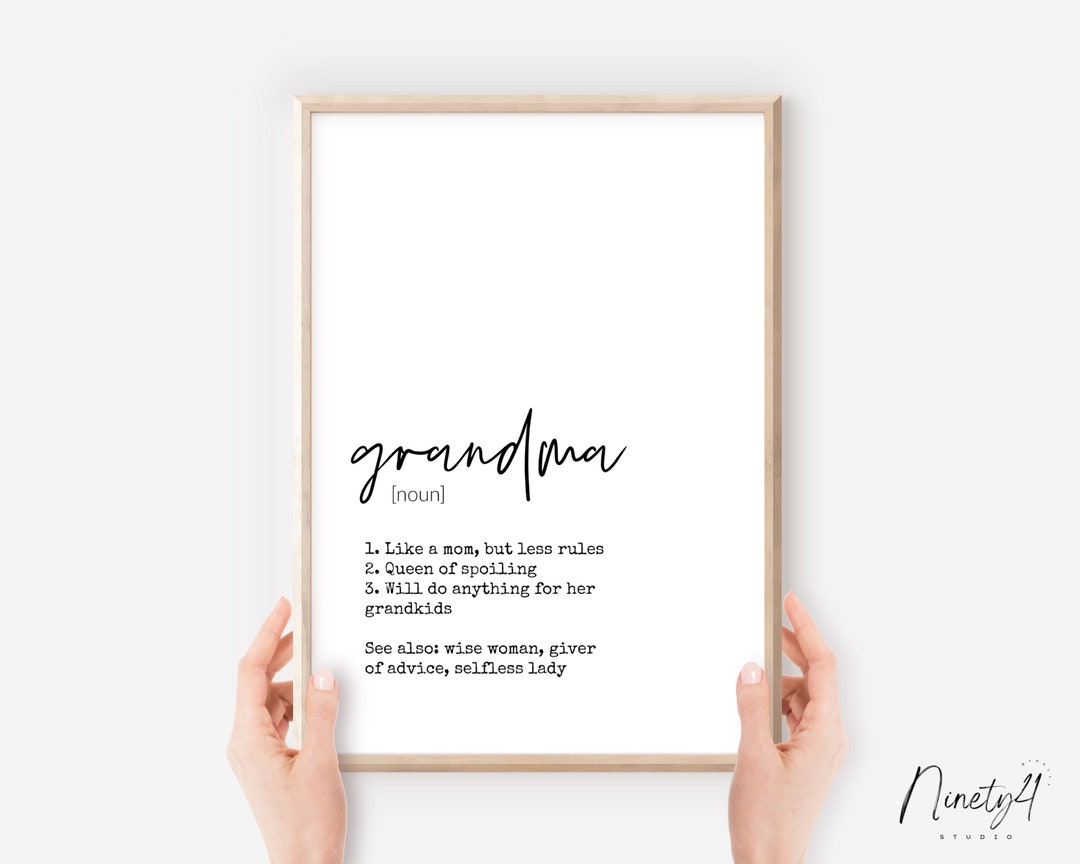 grandma
[noun]
1. Like a mom, but less rules
2. Queen of spoiling
3. Will do anything for her
grandkids
See also: wise woman, giver
of advice, selfless lady
Ninety4
STUDIO